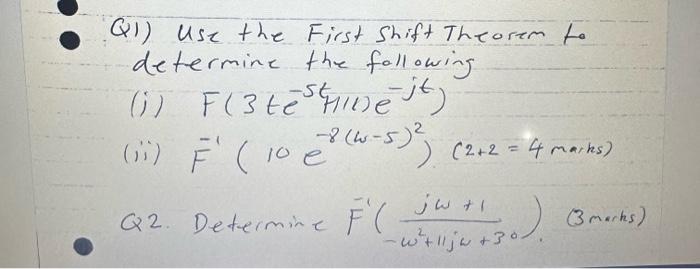 Q1) Use the First Shift Theorem to
determine the following
(i) F(3te^{-5t}H(t)e^{-jt})
(ii) F^{-1}(10e^{-8(w-5)^2}) (2+2 = 4 marks)
Q2. Determine F^{-1}(\frac{jw+1}{-w^2+11jw+30}). (3marks)